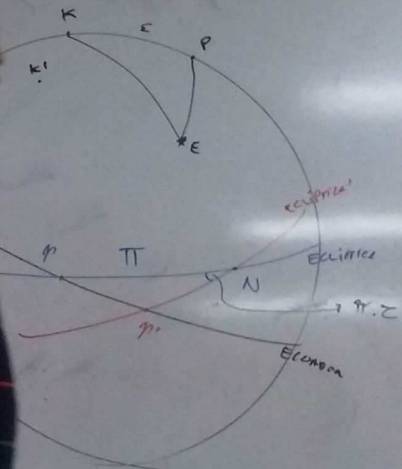 K
ε
P
K'
E
ecliptica'
Π
N
Eclittica
π.τ
Ecuador